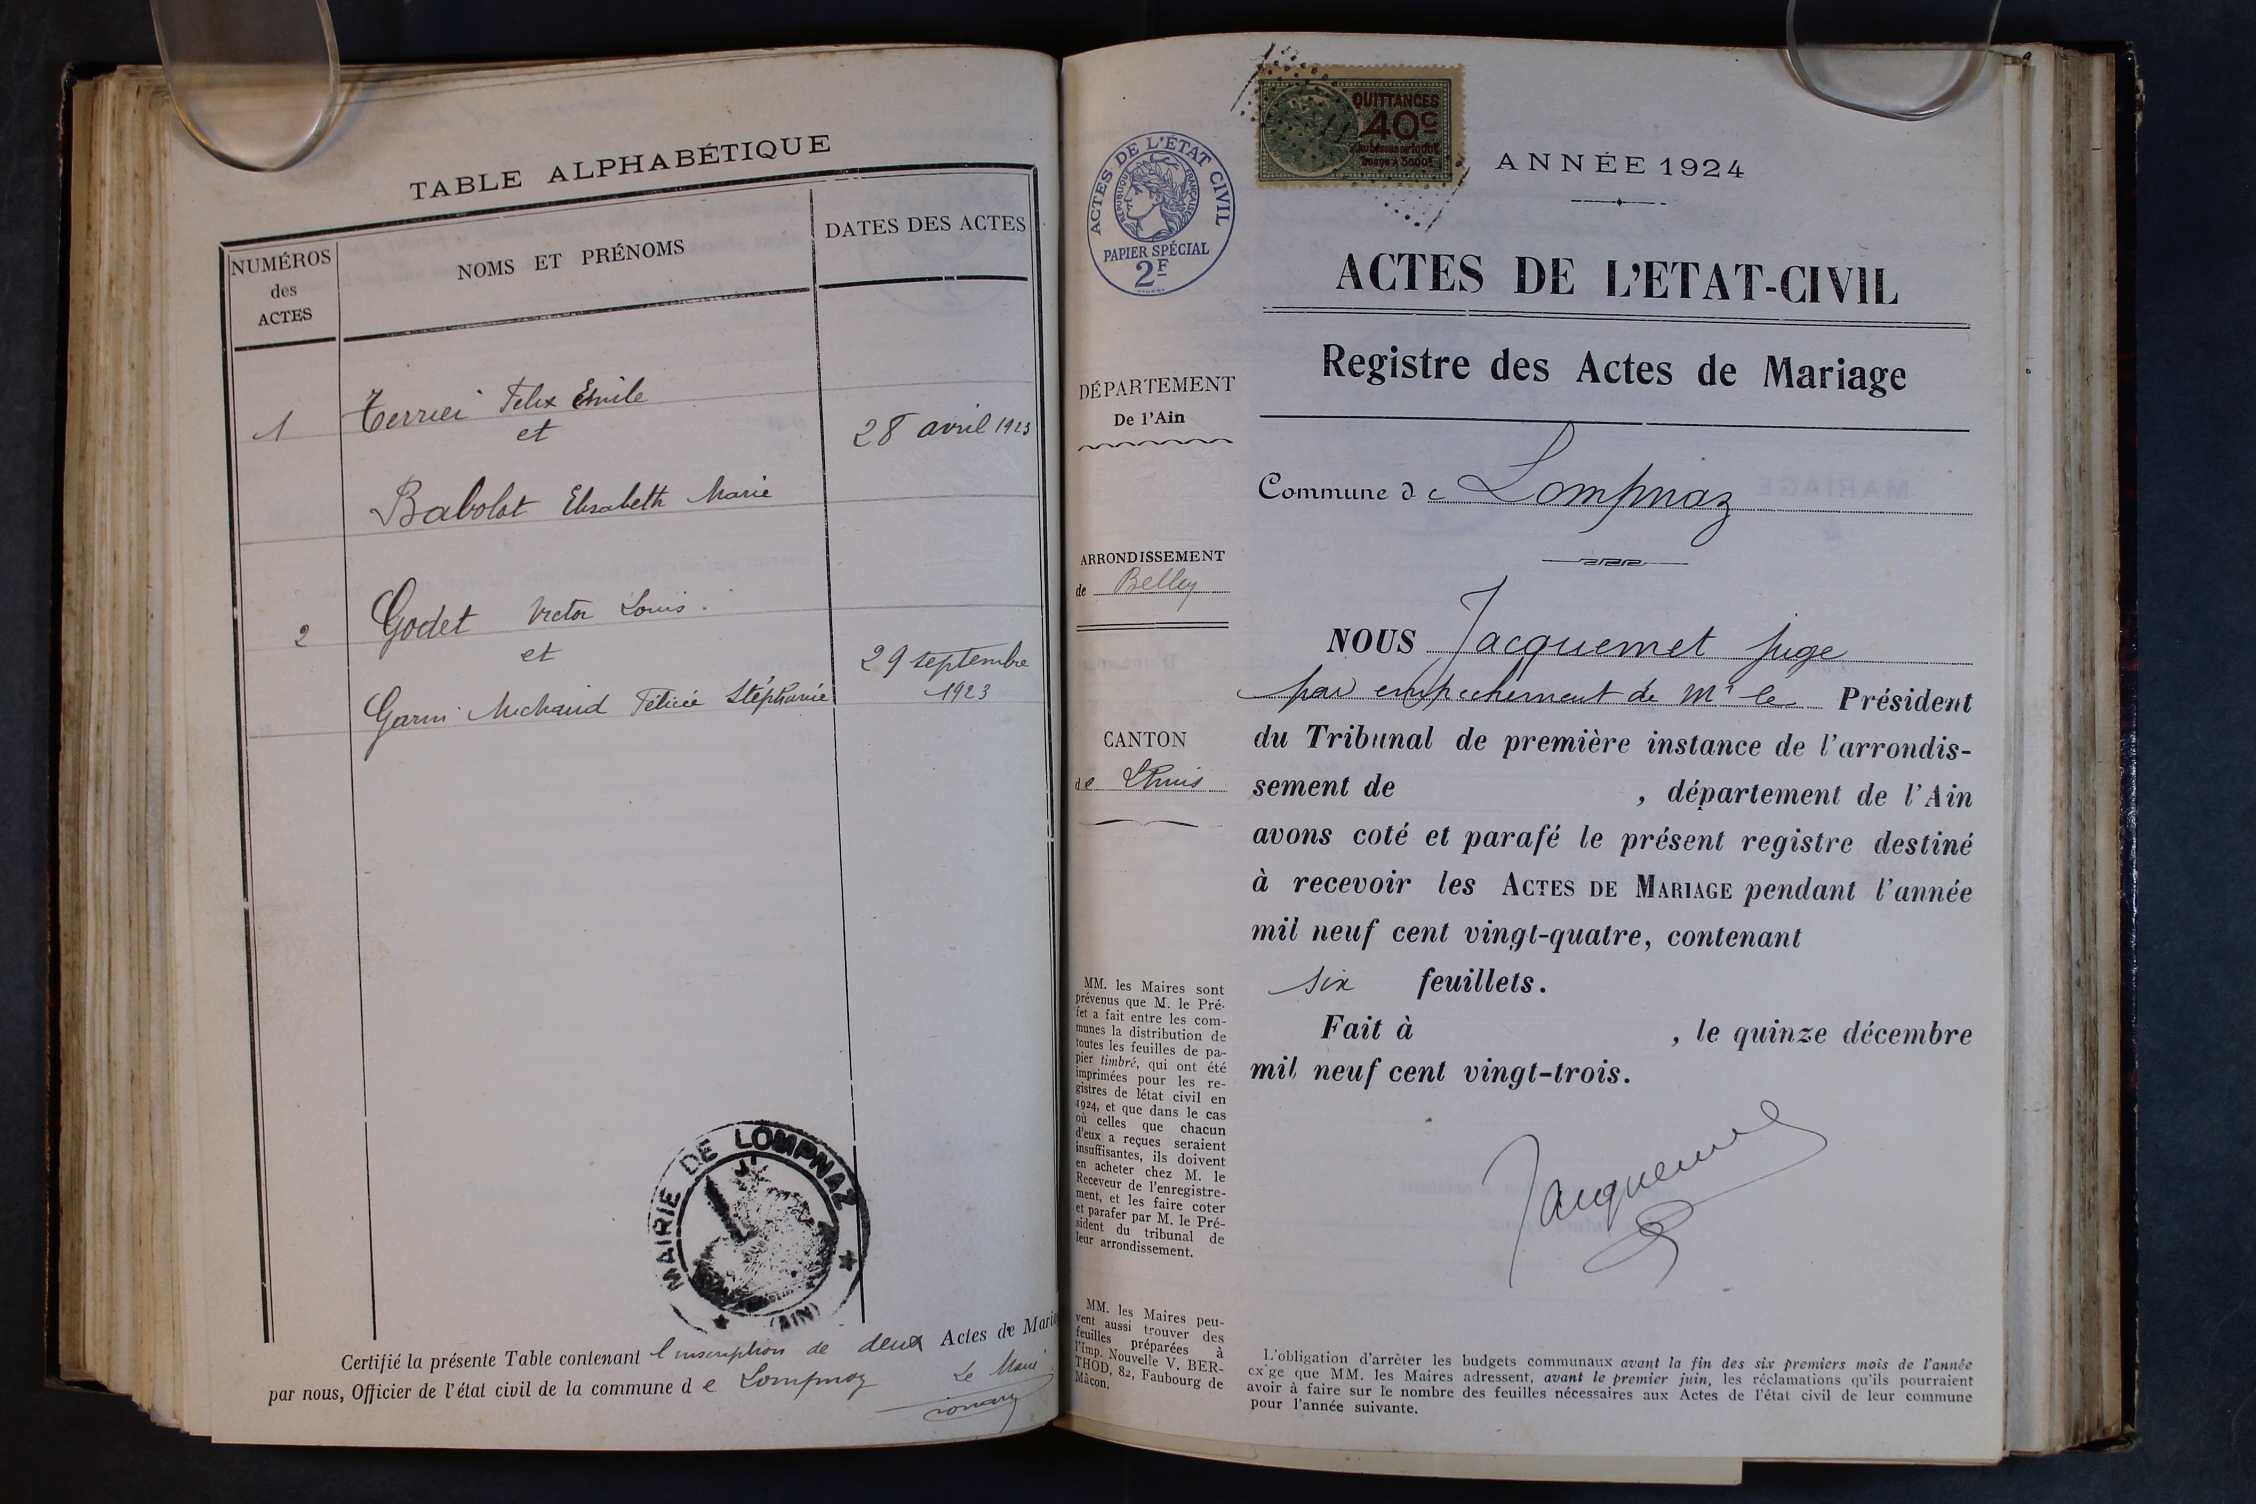 TABLE ALPHABÉTIQUE
NUMÉROS
des
ACTES
NOMS ET PRÉNOMS
DATES DES ACTES
1
Felix Emile
et
28 avril 1923
Babolat Elisabeth Marie
2
Godet Victor Louis.
et
29 septembre
1923
Michaud Félicie Stéphanie
MAIRIE DE LOMPNAZ
(AIN)
Certifié la présente Table contenant l'inscription de deux Actes de Maria
par nous, Officier de l'état civil de la commune de Lompnaz Le Maire
ACTES DE L'ÉTAT CIVIL
RÉPUBLIQUE FRANÇAISE
PAPIER SPÉCIAL
2F
QUITTANCES
40c
ANNÉE 1924
ACTES DE L'ETAT-CIVIL
Registre des Actes de Mariage
DÉPARTEMENT
De l'Ain
Commune de Lompnaz
ARRONDISSEMENT
de Belley
CANTON
de Lhuis
NOUS Jacquemet juge
par empechement de Mr le Président
du Tribunal de première instance de l'arrondis-
sement de , département de l'Ain
avons coté et parafé le présent registre destiné
à recevoir les ACTES DE MARIAGE pendant l'année
mil neuf cent vingt-quatre, contenant
six feuillets.
Fait à , le quinze décembre
mil neuf cent vingt-trois.
Jacquemet
MM. les Maires sont
prévenus que M. le Pré-
fet a fait entre les com-
munes la distribution de
toutes les feuilles de pa-
pier timbré, qui ont été
imprimées pour les re-
gistres de l'état civil en
1924, et que dans le cas
où celles que chacun
d'eux a reçues seraient
insuffisantes, ils doivent
en acheter chez M. le
Receveur de l'enregistre-
ment, et les faire coter
et parafer par M. le Pré-
sident du tribunal de
leur arrondissement.
MM. les Maires peu-
vent aussi trouver des
feuilles préparées à
l'Imp. Nouvelle V. BER-
THOD, 82, Faubourg de
Mâcon.
L'obligation d'arrêter les budgets communaux avant la fin des six premiers mois de l'année
ex'ge que MM. les Maires adressent, avant le premier juin, les réclamations qu'ils pourraient
avoir à faire sur le nombre des feuilles nécessaires aux Actes de l'état civil de leur commune
pour l'année suivante.